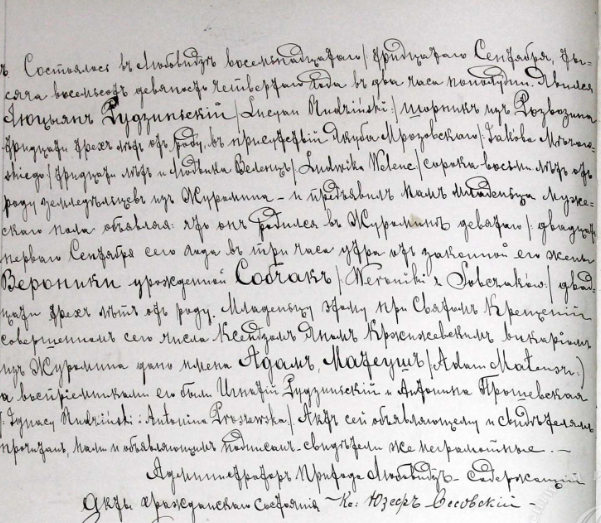 Состоялось въ Любовидзѣ восемьнадцатаго /тридцатаго Сентября, ты-
сяча восемьсотъ девяность четвертаго года въ два часа пополудни. Явился
Люцыянъ Рудзиньскій /Lucyan Rudziński:/ шорникъ изъ Розвозина
тридцати трехъ лѣтъ отъ роду, въ присутствіи Якуба Мрозовскаго /Jakóba Mrozow-
skiego/ тридцати лѣтъ и Людвика Веленцъ /Ludwika Welenc/ сорока восьми лѣтъ отъ
роду земледѣльцовъ изъ Журомина - и предъявилъ намъ младенца муже-
скаго пола объявляя: что онъ родился въ Журоминѣ девятаго / двадцать
перваго Сентября сего года въ три часа утра отъ законной его жены
Вероники урожденной Собчакъ /Weroniki z Sobczaków:/ двад-
цати трехъ лѣтъ отъ роду. Младенцу этому при Святомъ Крещеніи
совершенномъ сего числа Ксендзомъ Яномъ Кржижевскимъ викаріемъ
изъ Журомина дано имена Адамъ, Матеушъ /:Adam Mateusz:/
а воспріемниками его были Игнатій Рудзиньскій и Антонина Прошевская
/:Ignacy Rudziński: Antonina Proszewska:/ Актъ сей объявляющему и свидѣтелямъ
прочитанъ, нами и объявляющимъ подписанъ - свидѣтели же неграмотные. -
Администраторъ Прихода Любовидзъ - Содержащій
Акты Гражданскаго Состоянія Кс: Юзефъ